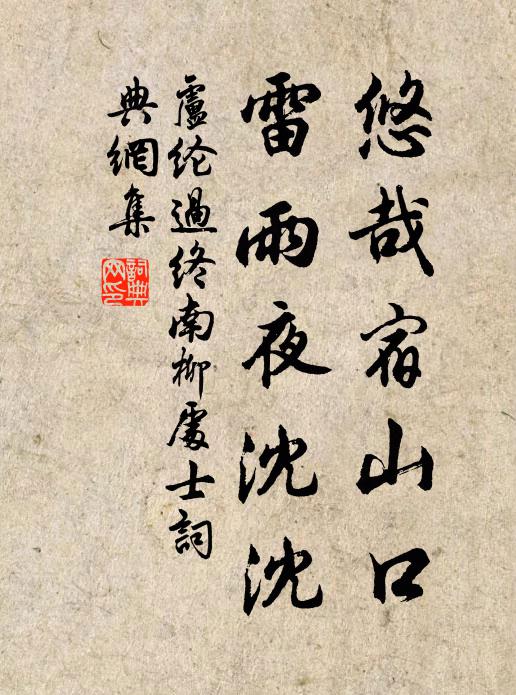 悠哉宿山口
雷雨夜沈沈
盧纶過終南柳處士詞
典網集
詞典
网印